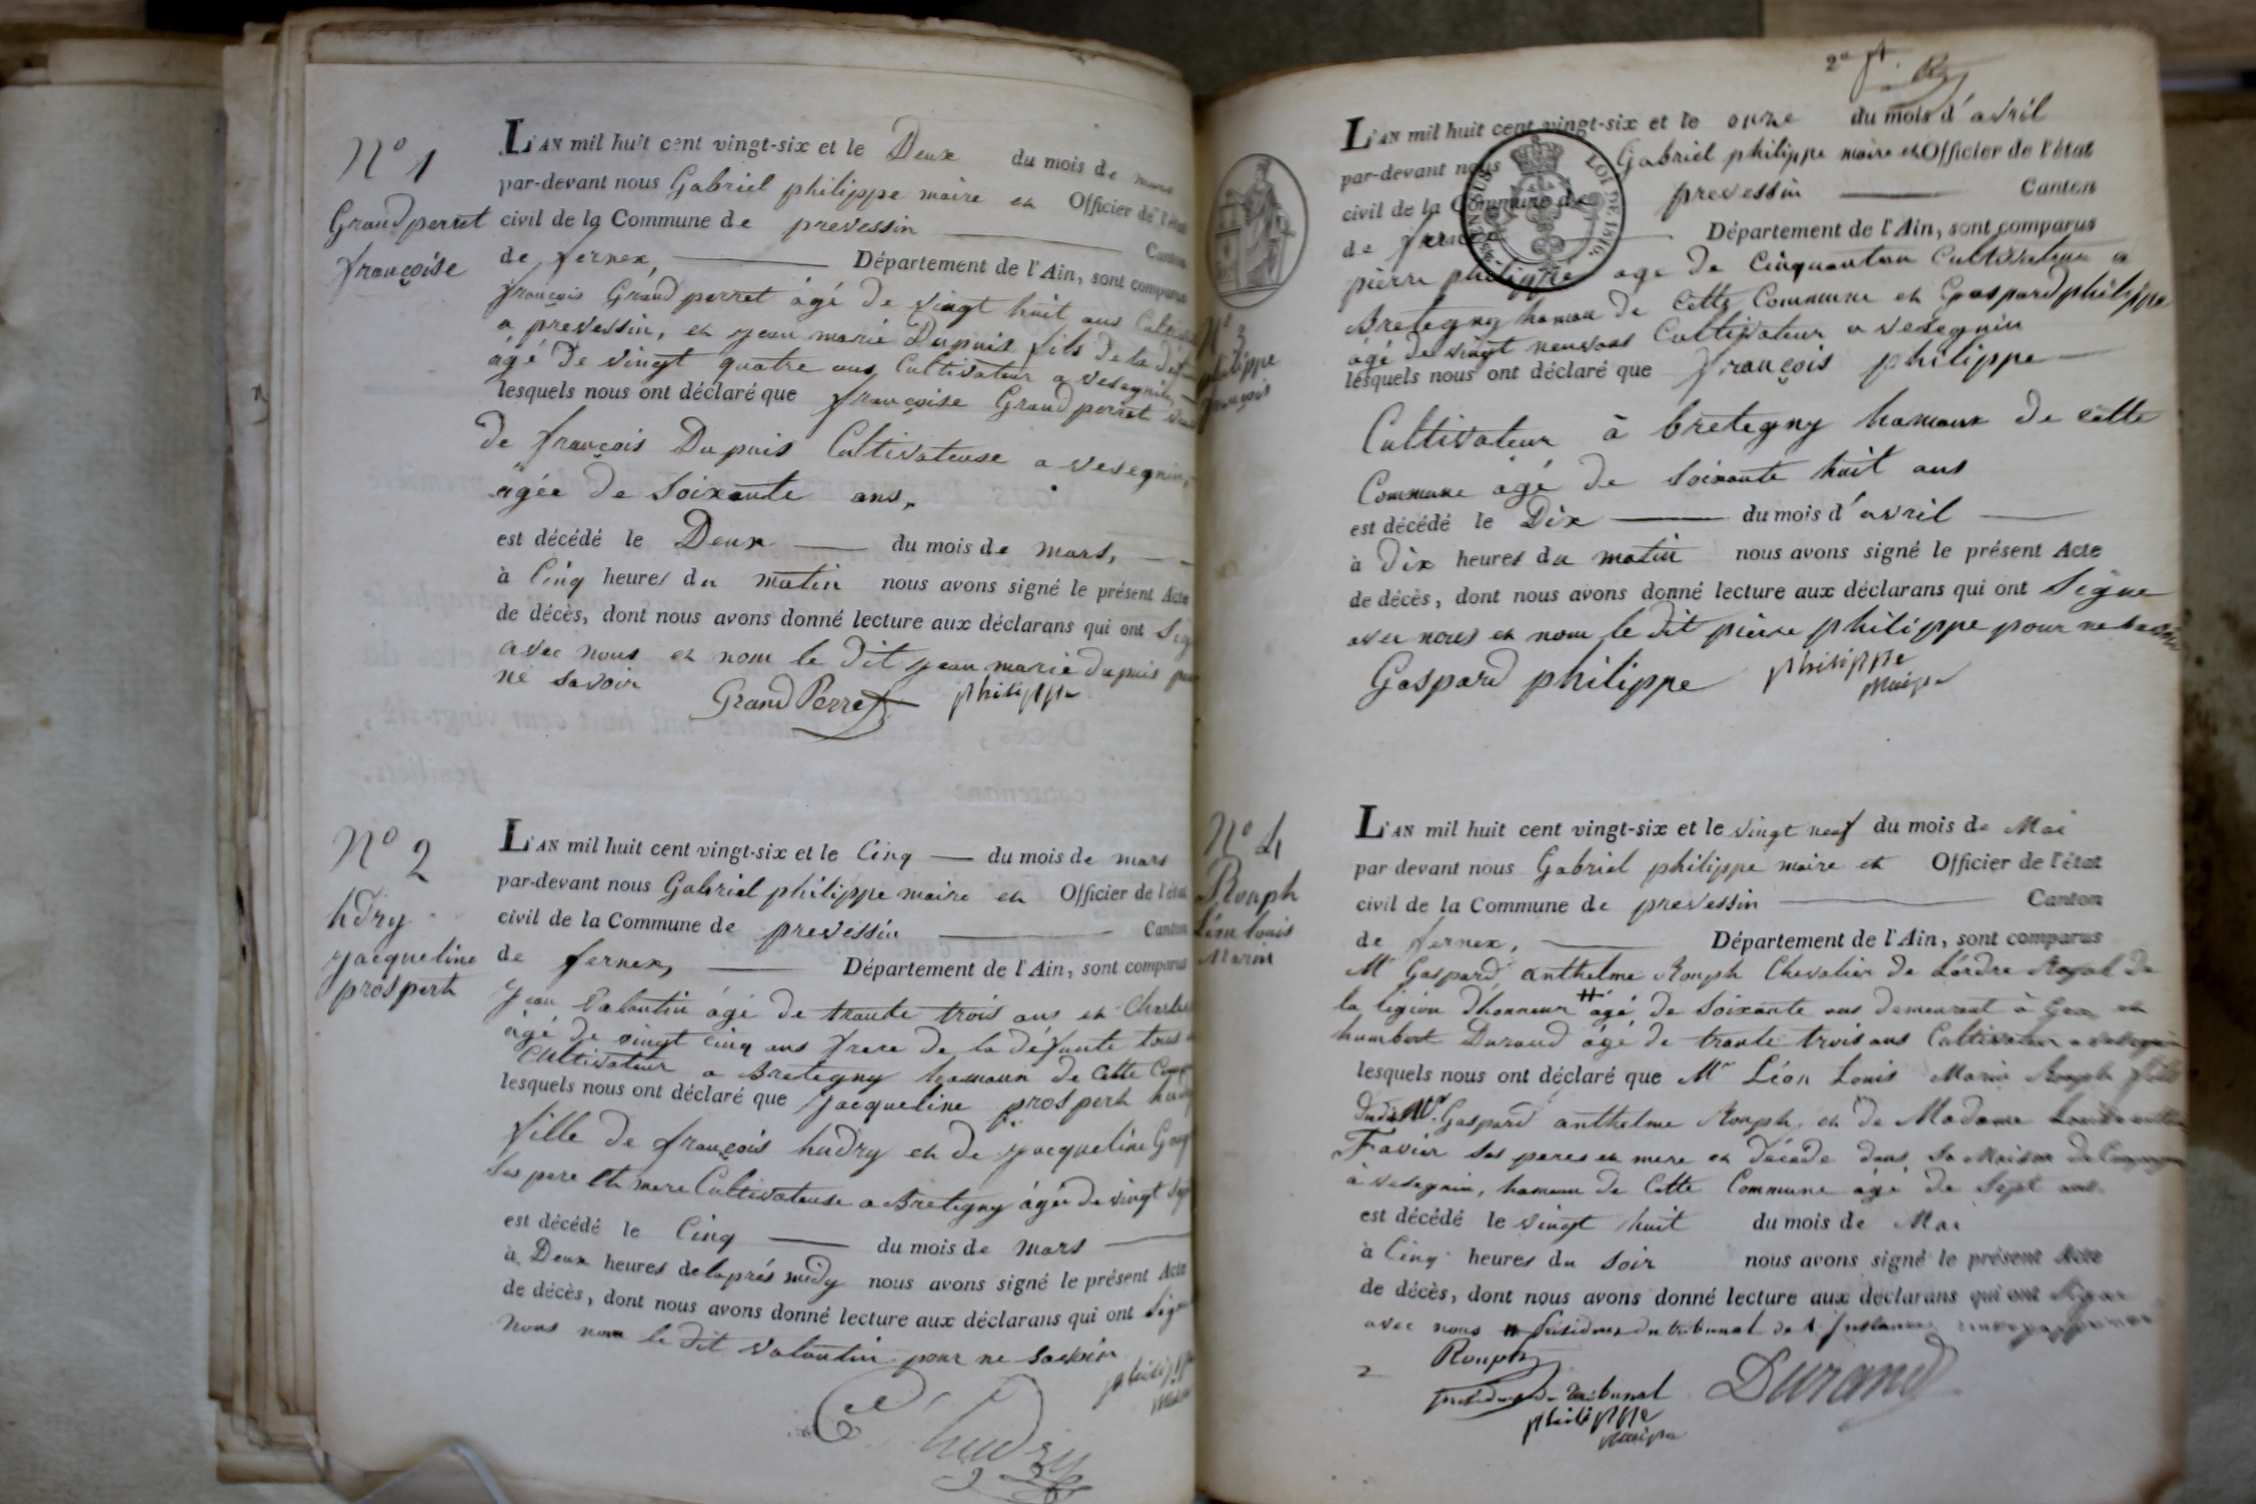 N° 1
Grandperret
françoise
L'AN mil huit cent vingt-six et le Deux du mois de mars
par-devant nous Gabriel philippe maire et Officier de l'état
civil de la Commune de prevessin Canton
de fernex, Département de l'Ain, sont comparus
françois Grandperret âgé de vingt huit ans
a prevessin, et jean marie Dupuis fils de la
âgé De vingt quatre ans Cultivateur a vesegnin,
lesquels nous ont déclaré que françoise Grandperret
de françois Dupuis Cultivateuse a vesegnin,
âgée De Soixante ans,
est décédé le Deux du mois de mars,
à Cinq heures du matin nous avons signé le présent Acte
de décès, dont nous avons donné lecture aux déclarans qui ont
avec nous et nom le Dit jean marie dupuis
ne savoir
Grand Perret philippe
N° 2
hdry
jacqueline
prosperh
L'AN mil huit cent vingt-six et le Cinq du mois de mars
par-devant nous Gabriel philippe maire et Officier de l'état
civil de la Commune de prevessin Canton
de fernex, Département de l'Ain, sont comparus
jean Valantin âgé De trante trois ans et Charles
âgé de vingt cinq ans frere de la défunte tous
Cultivateur a Bretegny hameaux de cette
lesquels nous ont déclaré que jacqueline prosperh
fille de françois hudry et de jacqueline
Ses pere et mere Cultivateuse a Bretegny âgée de vingt
est décédé le Cinq du mois de mars
à Deux heures de laprés midy nous avons signé le présent Acte
de décès, dont nous avons donné lecture aux déclarans qui ont
nous nom le dit Valantin pour ne savoir
philippe
hudry
2e ft.
N° 3
philippe
françois
L'AN mil huit cent vingt-six et le onze du mois d'avril
par-devant nous Gabriel philippe maire et Officier de l'état
civil de la Commune de prevessin Canton
de fernex Département de l'Ain, sont comparus
LOI DE 1816.
pierre philippe age de Cinquantan Cultivateur a
Bretegny hamau de cette Commune et Gaspard philippe
âgé de vingt neuf ans Cultivateur a vesegnin
lesquels nous ont déclaré que françois philippe
Cultivateur à bretegny hameaux de cette
Commune âgé de Soixante huit ans
est décédé le Dix du mois d'avril
à Dix heures du matin nous avons signé le présent Acte
de décès, dont nous avons donné lecture aux déclarans qui ont Signe
avec nous et nom le dit pierre philippe pour ne
Gaspard philippe philippe
N° 4
Rouph
Léon Louis
Marin
L'AN mil huit cent vingt-six et le vingt neuf du mois de Mai
par devant nous Gabriel philippe maire et Officier de l'état
civil de la Commune de prevessin Canton
de fernex, Département de l'Ain, sont comparus
Mr Gaspard anthelme Rouph Chevalier de L'ordre Royal de
la légion d'honneur # âgé de Soixante ans demeurant à Gex et
humbert Durand âgé de trante trois ans Cultivateur a
lesquels nous ont déclaré que Mr Léon Louis Marin Rouph fils
dudit Mr Gaspard anthelme Rouph, et de Madame
Favier Ses peres et mere et décédé dans Sa Maison de
à vesegnin, hameau de Cette Commune âgé de Sept ans.
est décédé le vingt huit du mois de Mai
à Cinq heures du Soir nous avons signé le présent Acte
de décès, dont nous avons donné lecture aux déclarans qui ont
avec nous # président du tribunal de 1
Rouph
président du tribunal Durand
philippe